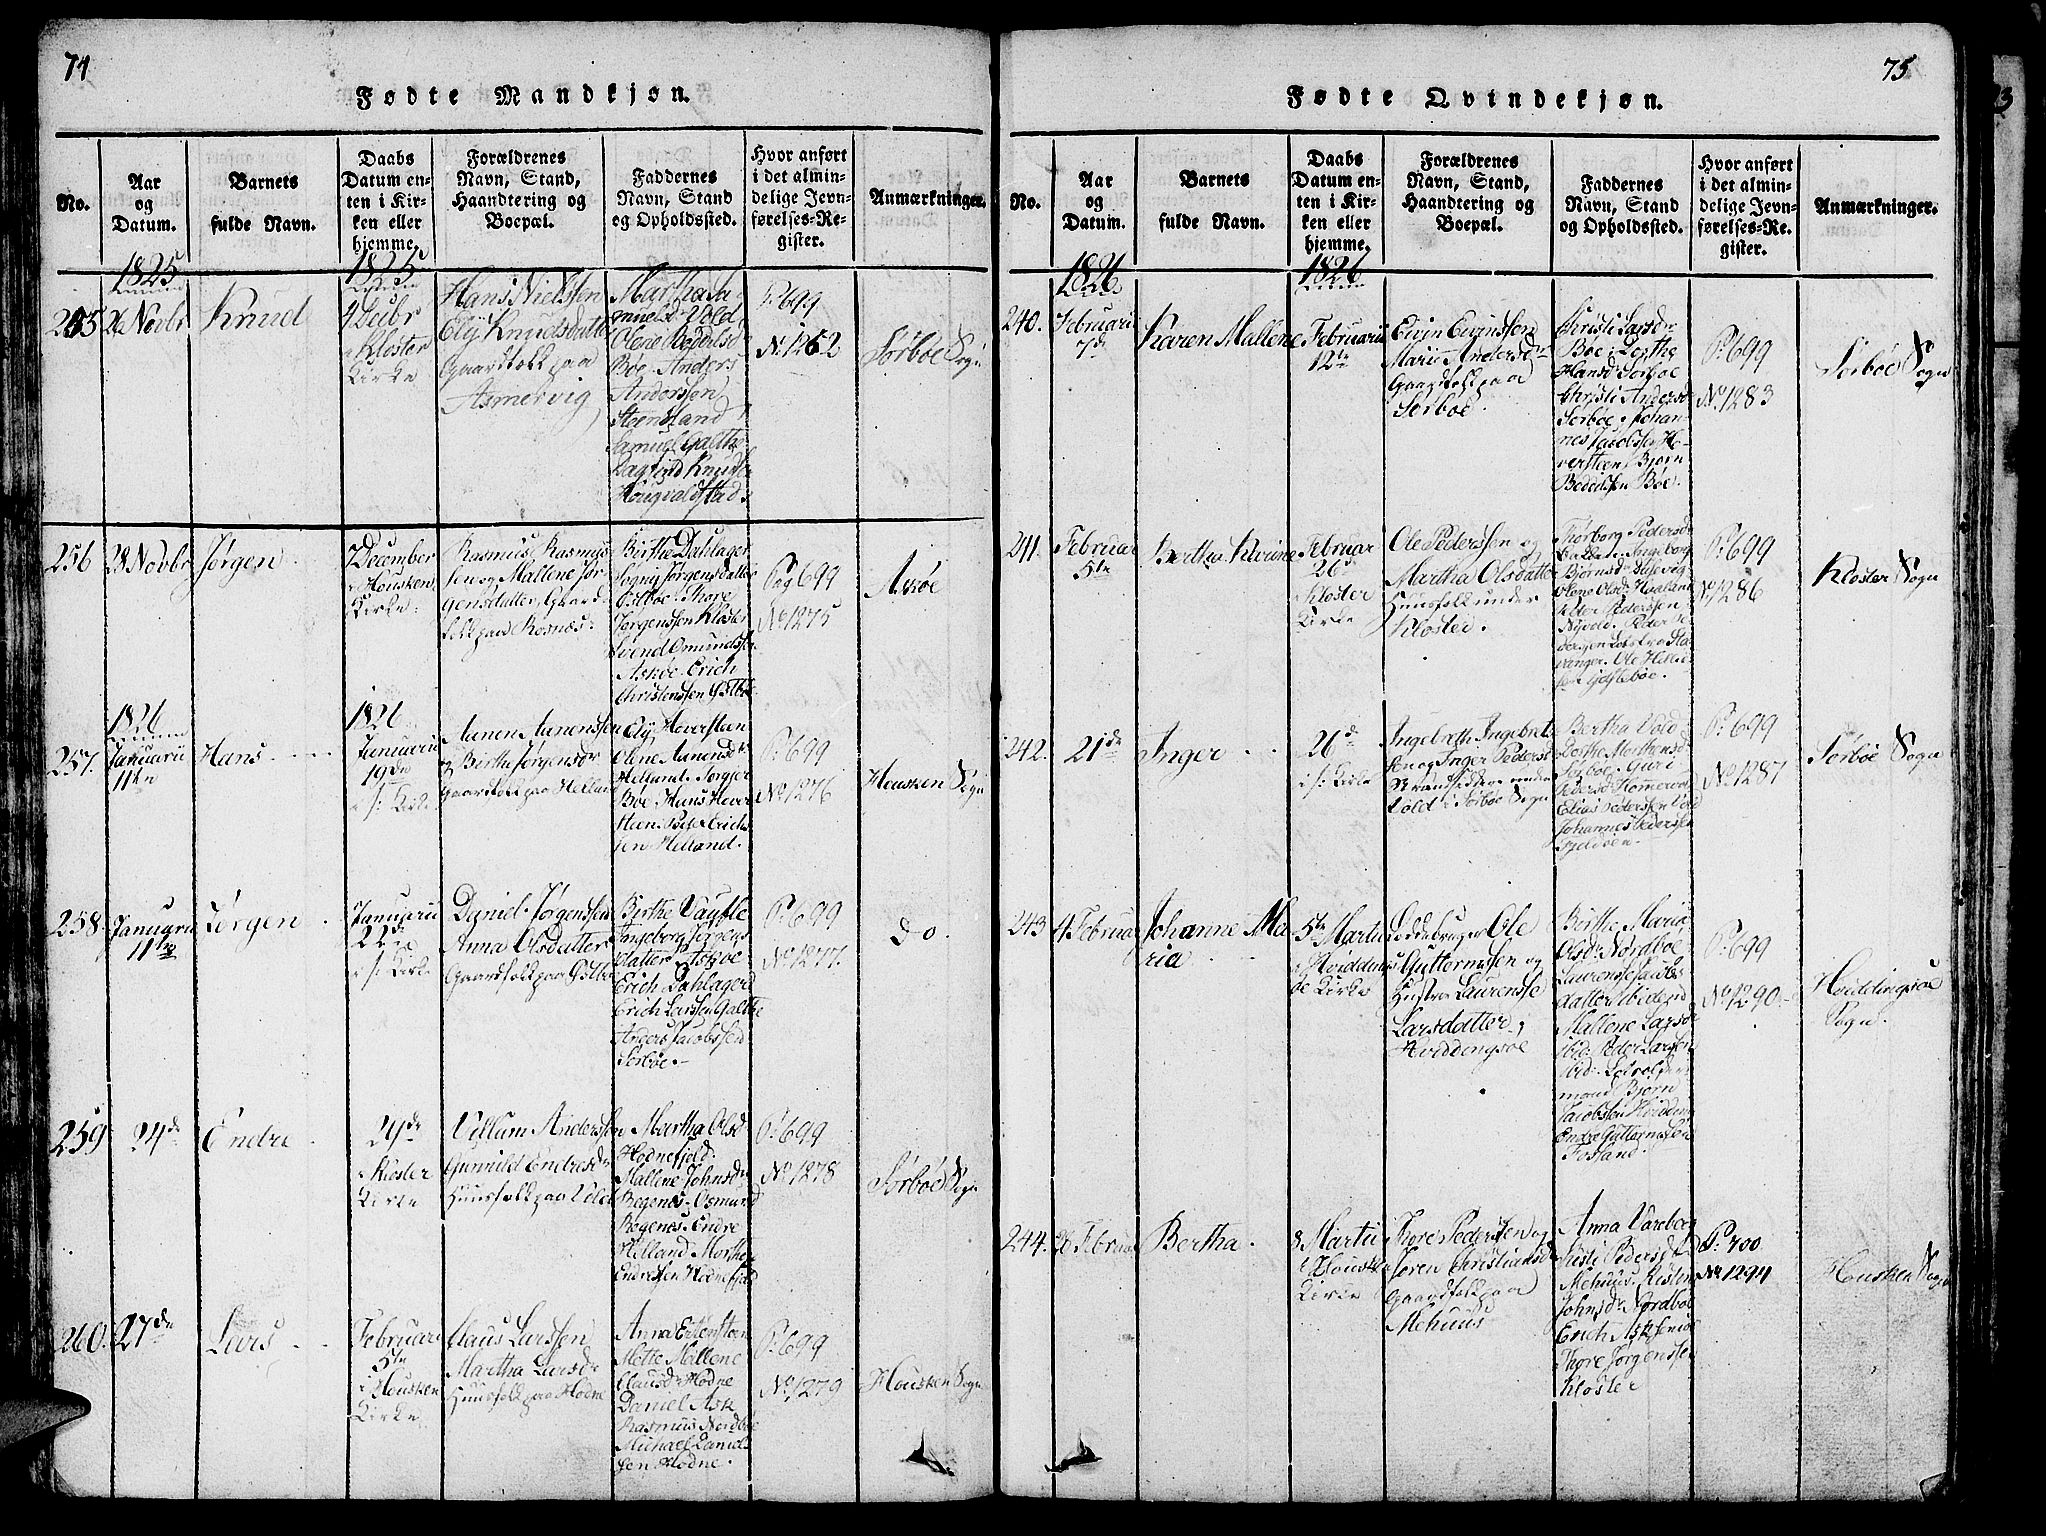 74
Fødte Mandkjøn.
No.
Aar
og
Datum.
Barnets
fulde Navn.
Daabs
Datum en-
ten i Kir-
ken eller
hjemme.
Forældrenes
Navn, Stand,
Haandtering og
Boepæl.
Faddernes
Navn, Stand
og Opholdssted.
Hvor anført
i det almin-
delige Jevn-
førelses-Re-
gister.
Anmærkninger.
1825
255
Novbr
Knud
1825
4 Decbr
i Kloster
Kirke
Hans Nielssen
Ely Knudsdatter
Gaardfolk paa
Asmervig
Martha Sa-
muelsd Vold
Olene Bederlsd
Bøe. Anders
Anderssen
Steensland
Samuel Galthe
Dagfind Knudsen
Rougvaldstad
P: 699
No 1262
Sørboe Sogn
256
28 Novbr
Jørgen
7 December
i Housken
Kirke
Rasmus Rasmus-
sen og Mallene Jør-
gensdatter, Gaard-
folk paa Rosnæs.
Birthe Dahlager
Jørgensdatter
Østbøe. Thore
Jørgenssen Kloster
Svend Omundssen
Askøe Erich
Christenssen Østbøe
Pag 699
No 1275
Askøe
1826
257.
Januarii
11te
Hans
1826
Januarii
19de
i s: Kirke
Aanen Aanenssen
og Birthe Jørgensdr
Gaardfolk paa Helland
Ely Haversteen
Olene Aanensdr
Helland. Torger
Bøe. Hans Haver
steen. Peter Erichs
sen Helland.
P: 699
No 1276
Housken Sogn
258.
Januarii
11te
Jørgen
Januarii
22de
i s: Kirke
Daniel Jørgenssen
Anna Olsdatter
Gaardfolk paa Østbøe
Birthe
Ingeborg Jørgens
datter Askøe
Erich Dahlager
Erich Larssen Galthe
Anders Jacobssen
Sørbøe.
P: 699
No 1277.
do.
259
24de
Endre
29de
i Kloster
Kirke
Villum Anderssen
Gunnild Endresdr
Huusfolk paa Vold
Martha Olsd
Hodnefjeld.
Mallene Johnsdr
Regenes. Osmund
Regenes. Endre
Helland Morthe
Endressen Hodnefjeld
P: 699
No 1278
Sørbøe Sogn
260.
27de
Lars
Februari
5te
i Housken
Kirke
Claus Larssen
Martha Larsdr
Huusfolk paa Hodne
Anna
Mette Mallene
Clausdr Hodne
Daniel Ask
Rasmus Nordbøe
Michael Daniels
sen Hodne.
P: 699
No 1279
Housken Sogn
75
Fødte Qvindekjøn.
No.
Aar
og
Datum.
Barnets
fulde Navn.
Daabs
Datum en-
ten i Kir-
ken eller
hjemme.
Forældrenes
Navn, Stand,
Haandtering og
Boepæl.
Faddernes
Navn, Stand
og Opholdssted.
Hvor anført
i det almin-
delige Jevn-
førelses-Re-
gister.
Anmærkninger.
1826
240.
Februarii
7de
Karen Mallene
1826
Februarii
12te
Evin Evinssen
Marie Andersdr
Gaardfolk paa
Sørbøe.
Christi Larsdr
Bøe. Berthe
Hansdr Sørbøe
Christi Andersdr
Sørbøe. Johan-
nes Jacobssen Ha-
versteen, Bjørn
Bederlssen Bøe.
P: 699
No 1283
Sørbøe Sogn
241.
Februar
5te
Bertha Karine
Februar
26de
Kloster
Kirke
Ole Pederssen og
Martha Olsdatter
Huusfolk under
Kloster.
Thorborg Pedersdr
Ingeborg
Bjørnsdr
Olene Olsdr Haaland
Peter Pederssen
Nyvold.
vanger. Ole Helle
sen Gjestebøe.
P: 699
No 1286
Kloster Sogn
242.
21de
Inger
26de
i s: Kirke
Ingebreth Ingebret
sen og Inger Pedersd
Strandsiddere under
Vold i Sørbøe Sogn
Bertha Vold
Dorthe Morthensdr
Sørbøe. Guri
Pedersd
Elias Pederssen Vold
Johannes Pederssen
P: 699
No 1287
Sørbøe Sogn
243
4 Februar
Johanne Ma
ria
5te Martii
i Hvidding
øe Kirke
Loddebruger Ole
Guttormssen og
Hustru Laurensse
Larsdatter,
Hviddingsøe
Birthe Maria
Olsdr Nordbøe
Laurensse Jacobs
datter ibidem
Mallene Larsdr
ibid. Peder Larssen
ibid.
mand Bjørn
Jacobssen Hvidding
Endre Guttormssen
Fosland.
P: 699
No 1290
Hviddingsøe
Sogn.
244.
Februar
Bertha
8 Martii
i Housken
Kirke
Thore Pederssen og
Søren Christiansdr
Gaardfolk paa
Mehuus
Anna Vareberg
Kirsti Pedersdr
Mehuus. Kirsten
Johnsdr Nordbøe
Erich Ask
Thore Jørgenssen
Kloster
P: 700
No 1294
Housken Sogn